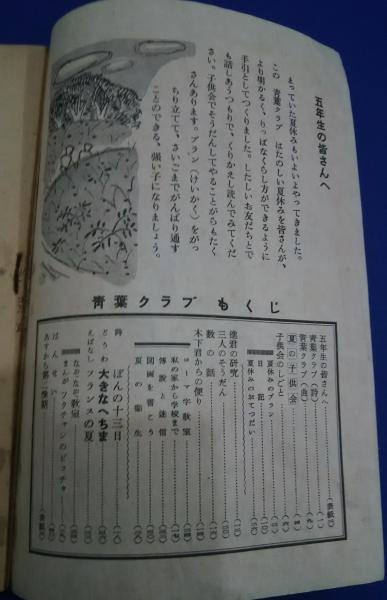 五年生の皆さんへ
まっていた夏休みもいよいよやってきました。
この 青葉クラブ はたのしい夏休みを皆さんが、
より明かるく、りっぱなくらし方ができるように
手引としてつくりました。したしいお友だちとで
も話しあうつもりで、くりかえし読んでみてくだ
さい。子供会でそうだんしてやることがらもたく
さんあります。プラン（けいかく）をがっ
ちり立てて、さいごまでがんばり通す
ことのできる、強い子になりましょう。
青葉クラブ もくじ
五年生の皆さんへ
（表紙）
青葉クラブ（詩）
青葉クラブ（曲）
夏の子供会
子供会のしごと
夏休みのプラン
日記
夏休みのおてつだい
進君の研究
三人のそうだん
数の話
木下君からの便り
ローマ字教室
私の家から学校まで
傳説と迷信
図画を書こう
夏の衛生
詩 ぼんの十三日
どうわ 大きなへちま
えばなし フランスの夏
なぞなぞ教室
まんが フクチャンのピッチャ
はんせい
あすから第二学期
（表紙）